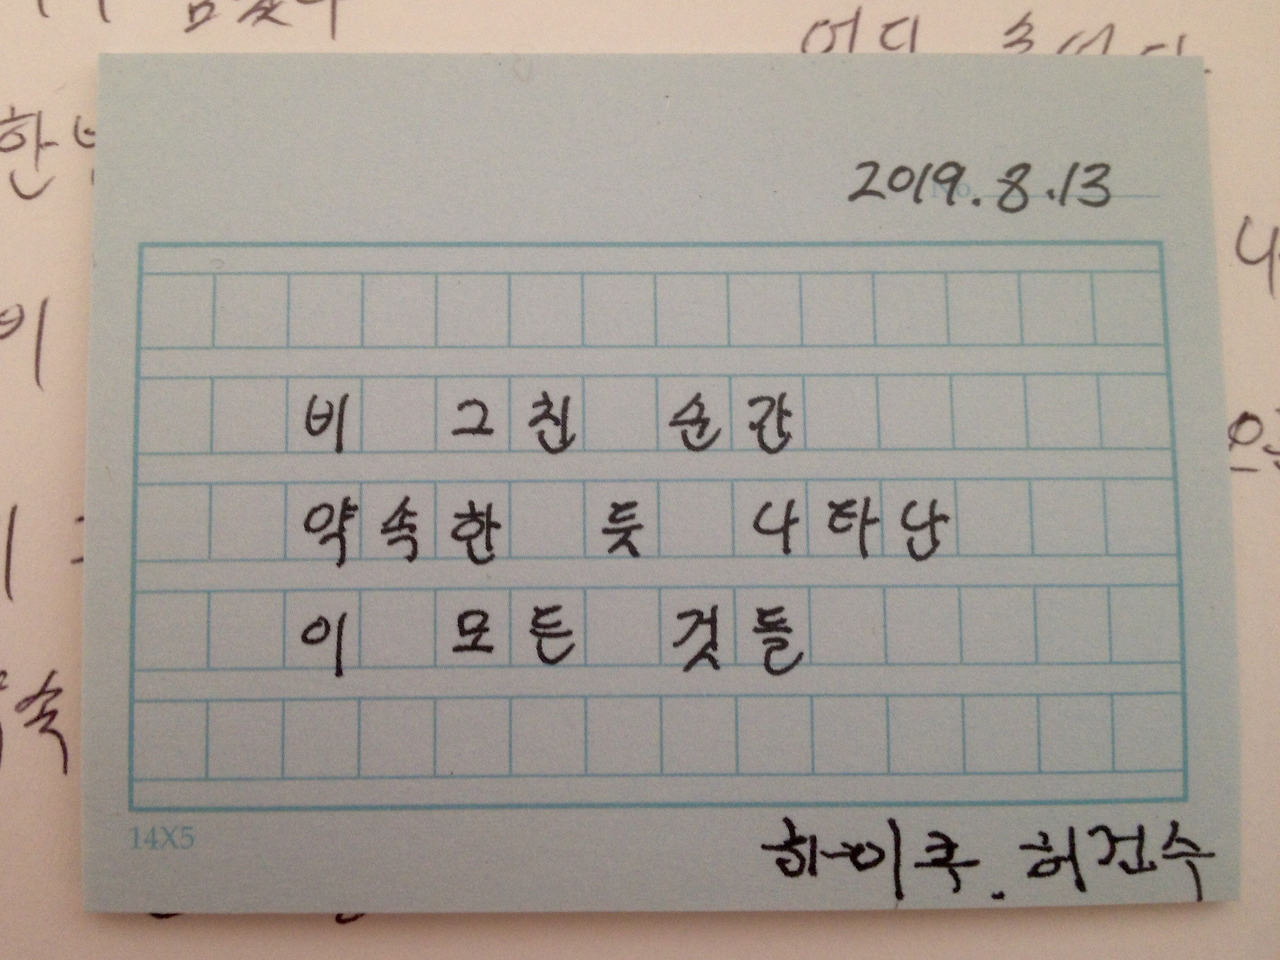 2019.8.13
비 그친 순간
약속한 듯 나타난
이 모든 것들
14X5
하이쿠. 허건수